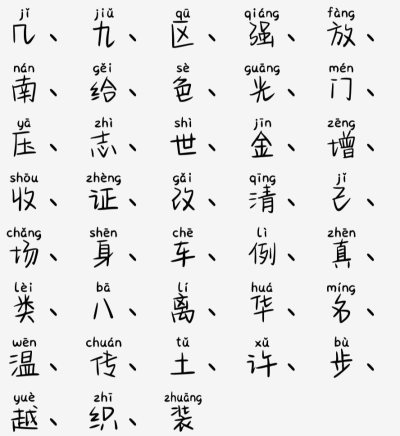 jǐ jiǔ qū qiáng fàng
几、九、区、强、放、
nán gěi sè guāng mén
南、给、色、光、门、
yā zhì shì jīn zēng
压、志、世、金、增、
shōu zhèng gǎi qīng jǐ
收、证、改、清、己、
chǎng shēn chē lì zhēn
场、身、车、例、真、
lèi bā lí huá míng
类、八、离、华、名、
wēn chuán tǔ xǔ bù
温、传、土、许、步、
yuè zhī zhuāng
越、织、装